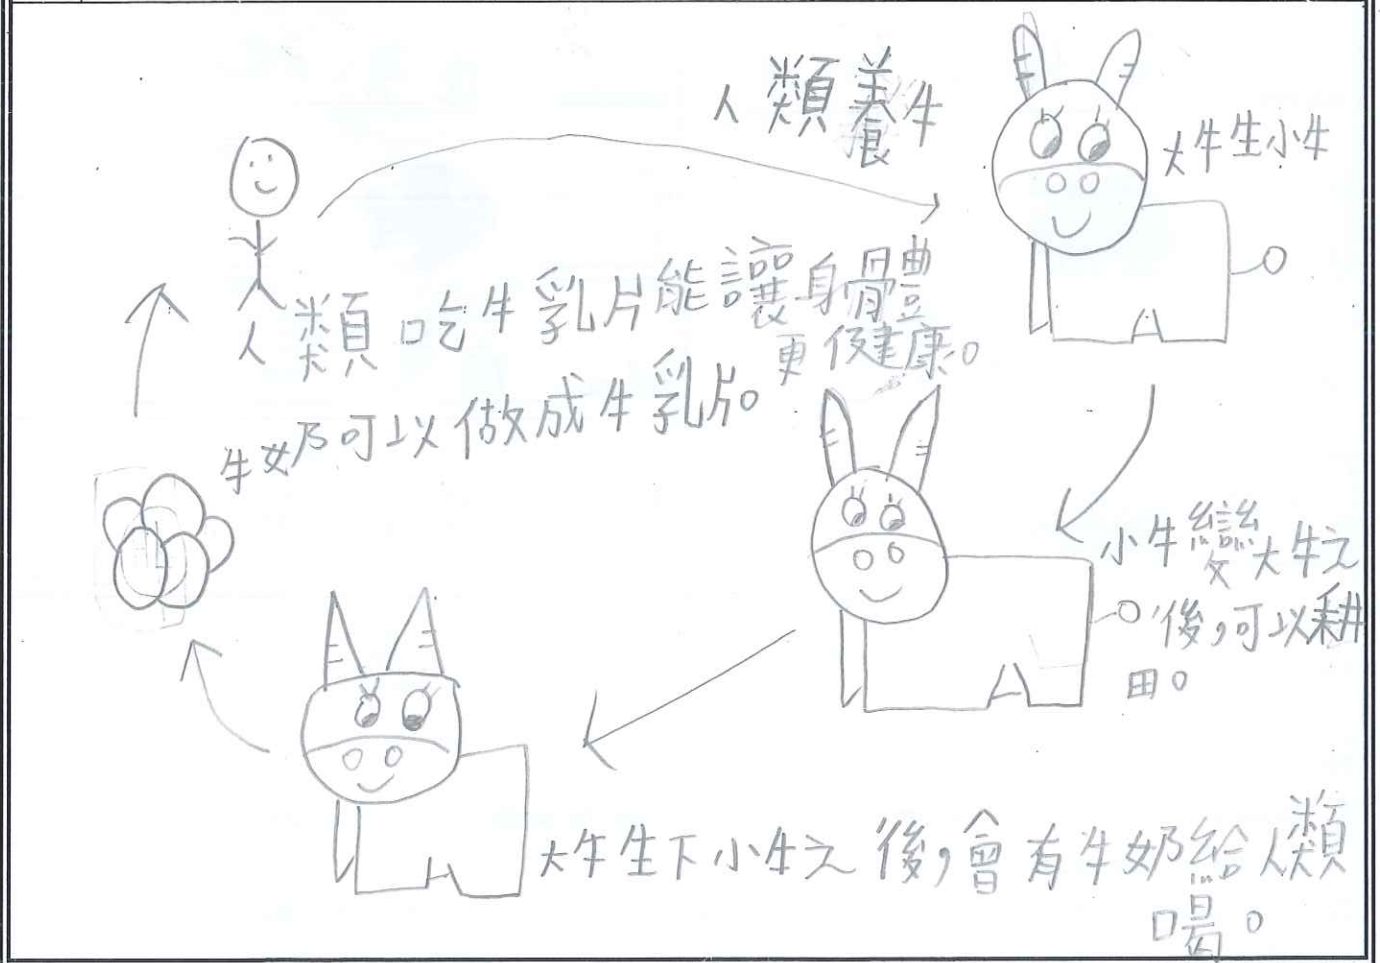 人類養牛
大牛生小牛
人類吃牛乳片能讓身體
更健康。
牛奶可以做成牛乳片。
小牛變大牛之
後,可以耕
田。
大牛生下小牛之後,會有牛奶給人類
喝。